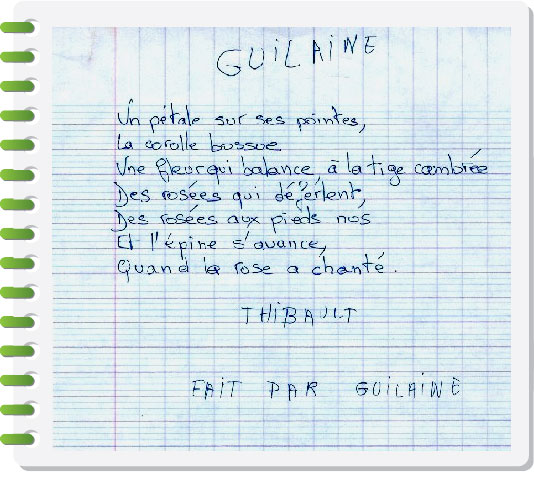 GUILAINE
Un pétale sur ses pointes,
La corolle bossue
Une fleur qui balance, à la tige cambrée
Des rosées qui déferlent,
Des rosées aux pieds nus
Et l'épine s'avance,
Quand la rose a chanté.
THIBAULT
FAIT PAR GUILAINE